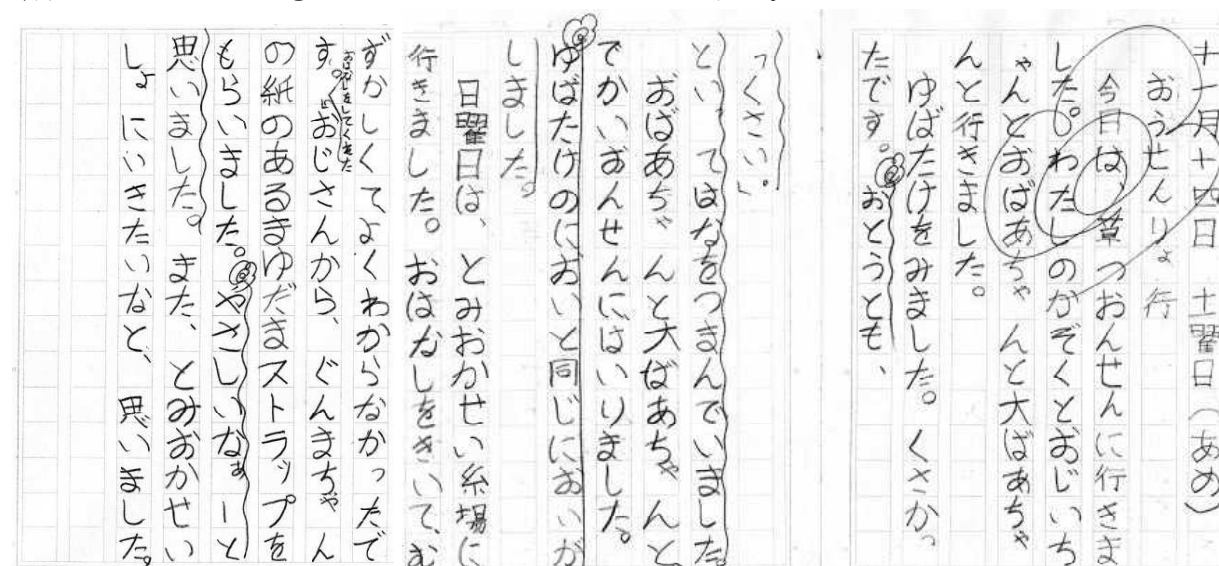 十一月十四日 土曜日(あめ)
おうせんりょ行
今日は、草つおんせんに行きま
した。わたしのかぞくとおじいち
ゃんとおばあちゃんと大ばあちゃ
んと行きました。
ゆばたけをみました。くさかっ
たです。おとうとも、
「くさい。」
といってはなをつまんでいました。
おばあちゃんと大ばあちゃんと
でかいおんせんにはいりました。
ゆばたけのにおいと同じにおいが
しました。
日曜日は、とみおかせい糸場に
行きました。おはなしをきいて、む
ずかしくてよくわからなかったで
す。おはなしをしてくれたおじさんから、ぐんまちゃん
の紙のあるまゆだまストラップを
もらいました。やさしいなぁーと
思いました。また、とみおかせい
しょにいきたいなと、思いました。